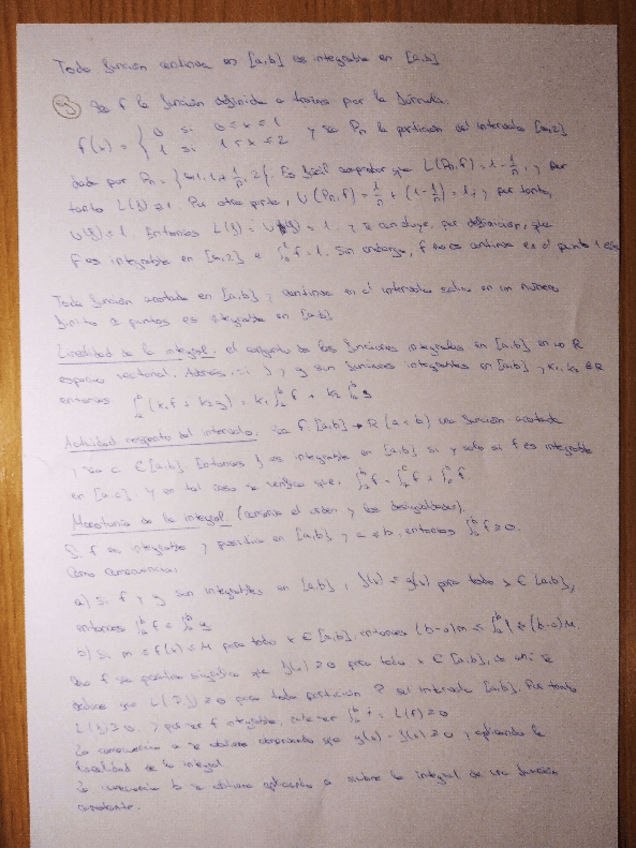 Toda función continua en [a,b] es integrable en [a,b]
Ej Sea f la función definida a trozos por la fórmula.
f(x) = { 0 si 0 ≤ x ≤ 1
1 si 1 < x ≤ 2 y sea Pn la partición del intervalo [0,2]
dada por Pn = {0,1,1+1/n,2}. Es fácil comprobar que L(Pn,f) = 1-1/n, y por
tanto L(f) ≥ 1. Por otra parte, U(Pn,f) = 1/n + (1-1/n) = 1, y por tanto,
U(f) ≤ 1 Entonces L(f) = U(f) = 1. y se concluye, por definición, que
f es integrable en [0,2] e ∫ f = 1. Sin embargo, f no es continua en el punto 1
Toda función acotada en [a,b] y continua en el intervalo salvo en un número
finito de puntos es integrable en [a,b]
Linealidad de la integral. el conjunto de las funciones integrables en [a,b] es un R
espacio vectorial. Además, si f y g son funciones integrables en [a,b] y k1, k2 ∈ R
entonces ∫ (k1 f + k2 g) = k1 ∫ f + k2 ∫ g
Aditividad respecto del intervalo. Sea f: [a,b] → R (a < b) una función acotada
y sea c ∈ [a,b]. Entonces f es integrable en [a,b] si y solo si f es integrable
en [a,c] y en tal caso se verifica que, ∫ f = ∫ f + ∫ f.
Monotonía de la integral (conserva el orden y las desigualdades).
Si f es integrable y positiva en [a,b] y a ≤ b, entonces ∫ f ≥ 0.
Como consecuencia:
a) Si f y g son integrables en [a,b], f(x) ≤ g(x) para todo x ∈ [a,b],
entonces ∫ f ≤ ∫ g
b) Si m ≤ f(x) ≤ M para todo x ∈ [a,b], entonces (b-a)m ≤ ∫ f ≤ (b-a)M.
Que f sea positiva significa que f(x) ≥ 0 para todo x ∈ [a,b], de ahí se
deduce que L(P,f) ≥ 0 para toda partición P del intervalo [a,b]. Por tanto
L(f) ≥ 0. y por ser f integrable, ∫ f = L(f) ≥ 0
La consecuencia a se obtiene observando que g(x) - f(x) ≥ 0 y aplicando la
linealidad de la integral
La consecuencia b se obtiene aplicando a sobre la integral de una función
constante.